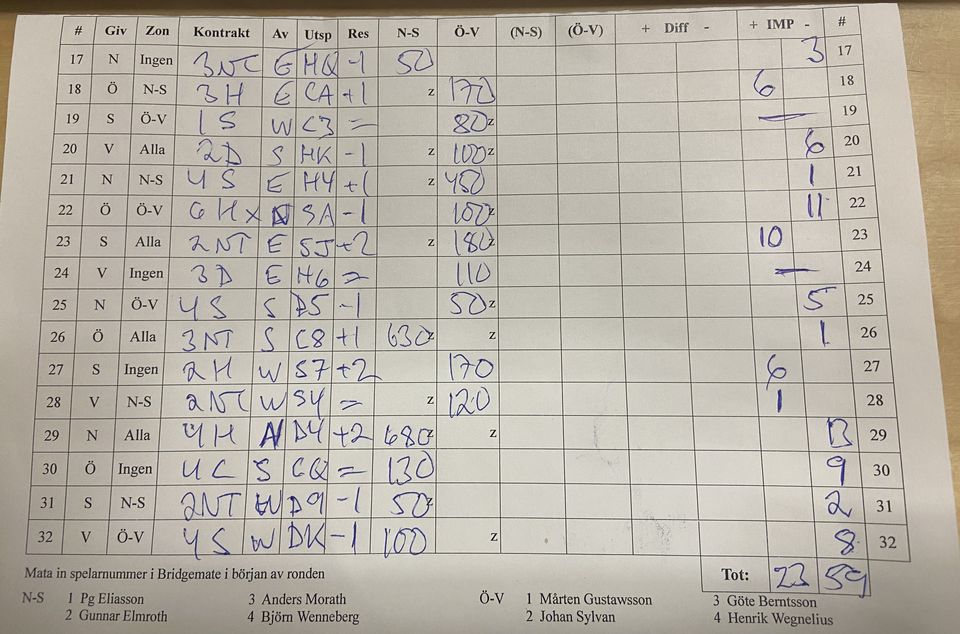 # Giv Zon Kontrakt Av Utsp Res N-S Ö-V (N-S) (Ö-V) + Diff - + IMP - #
17 N Ingen 3NT E HQ -1 50 3 17
18 Ö N-S 3H E CA +1 z 170 6 18
19 S Ö-V 1S W C3 = 80 z — 19
20 V Alla 2D S HK -1 z 100 z 6 20
21 N N-S 4S E H4 +1 z 450 1 21
22 Ö Ö-V 6HX N SA -1 100 z 11 22
23 S Alla 2NT E SJ +2 z 180 z 10 23
24 V Ingen 3D E H6 = 110 — 24
25 N Ö-V 4S S D5 -1 50 z 5 25
26 Ö Alla 3NT S C8 +1 630 z z 1 26
27 S Ingen 2H W S7 +2 170 6 27
28 V N-S 2NT W S4 = z 120 1 28
29 N Alla 4H N D4 +2 680 z z 13 29
30 Ö Ingen 4C S CQ = 130 9 30
31 S N-S 2NT W D9 -1 50 z 2 31
32 V Ö-V 4S W DK -1 100 z 8 32
Mata in spelarnummer i Bridgemate i början av ronden Tot: 23 59
N-S 1 Pg Eliasson 3 Anders Morath Ö-V 1 Mårten Gustawsson 3 Göte Berntsson
2 Gunnar Elmroth 4 Björn Wenneberg 2 Johan Sylvan 4 Henrik Wegnelius